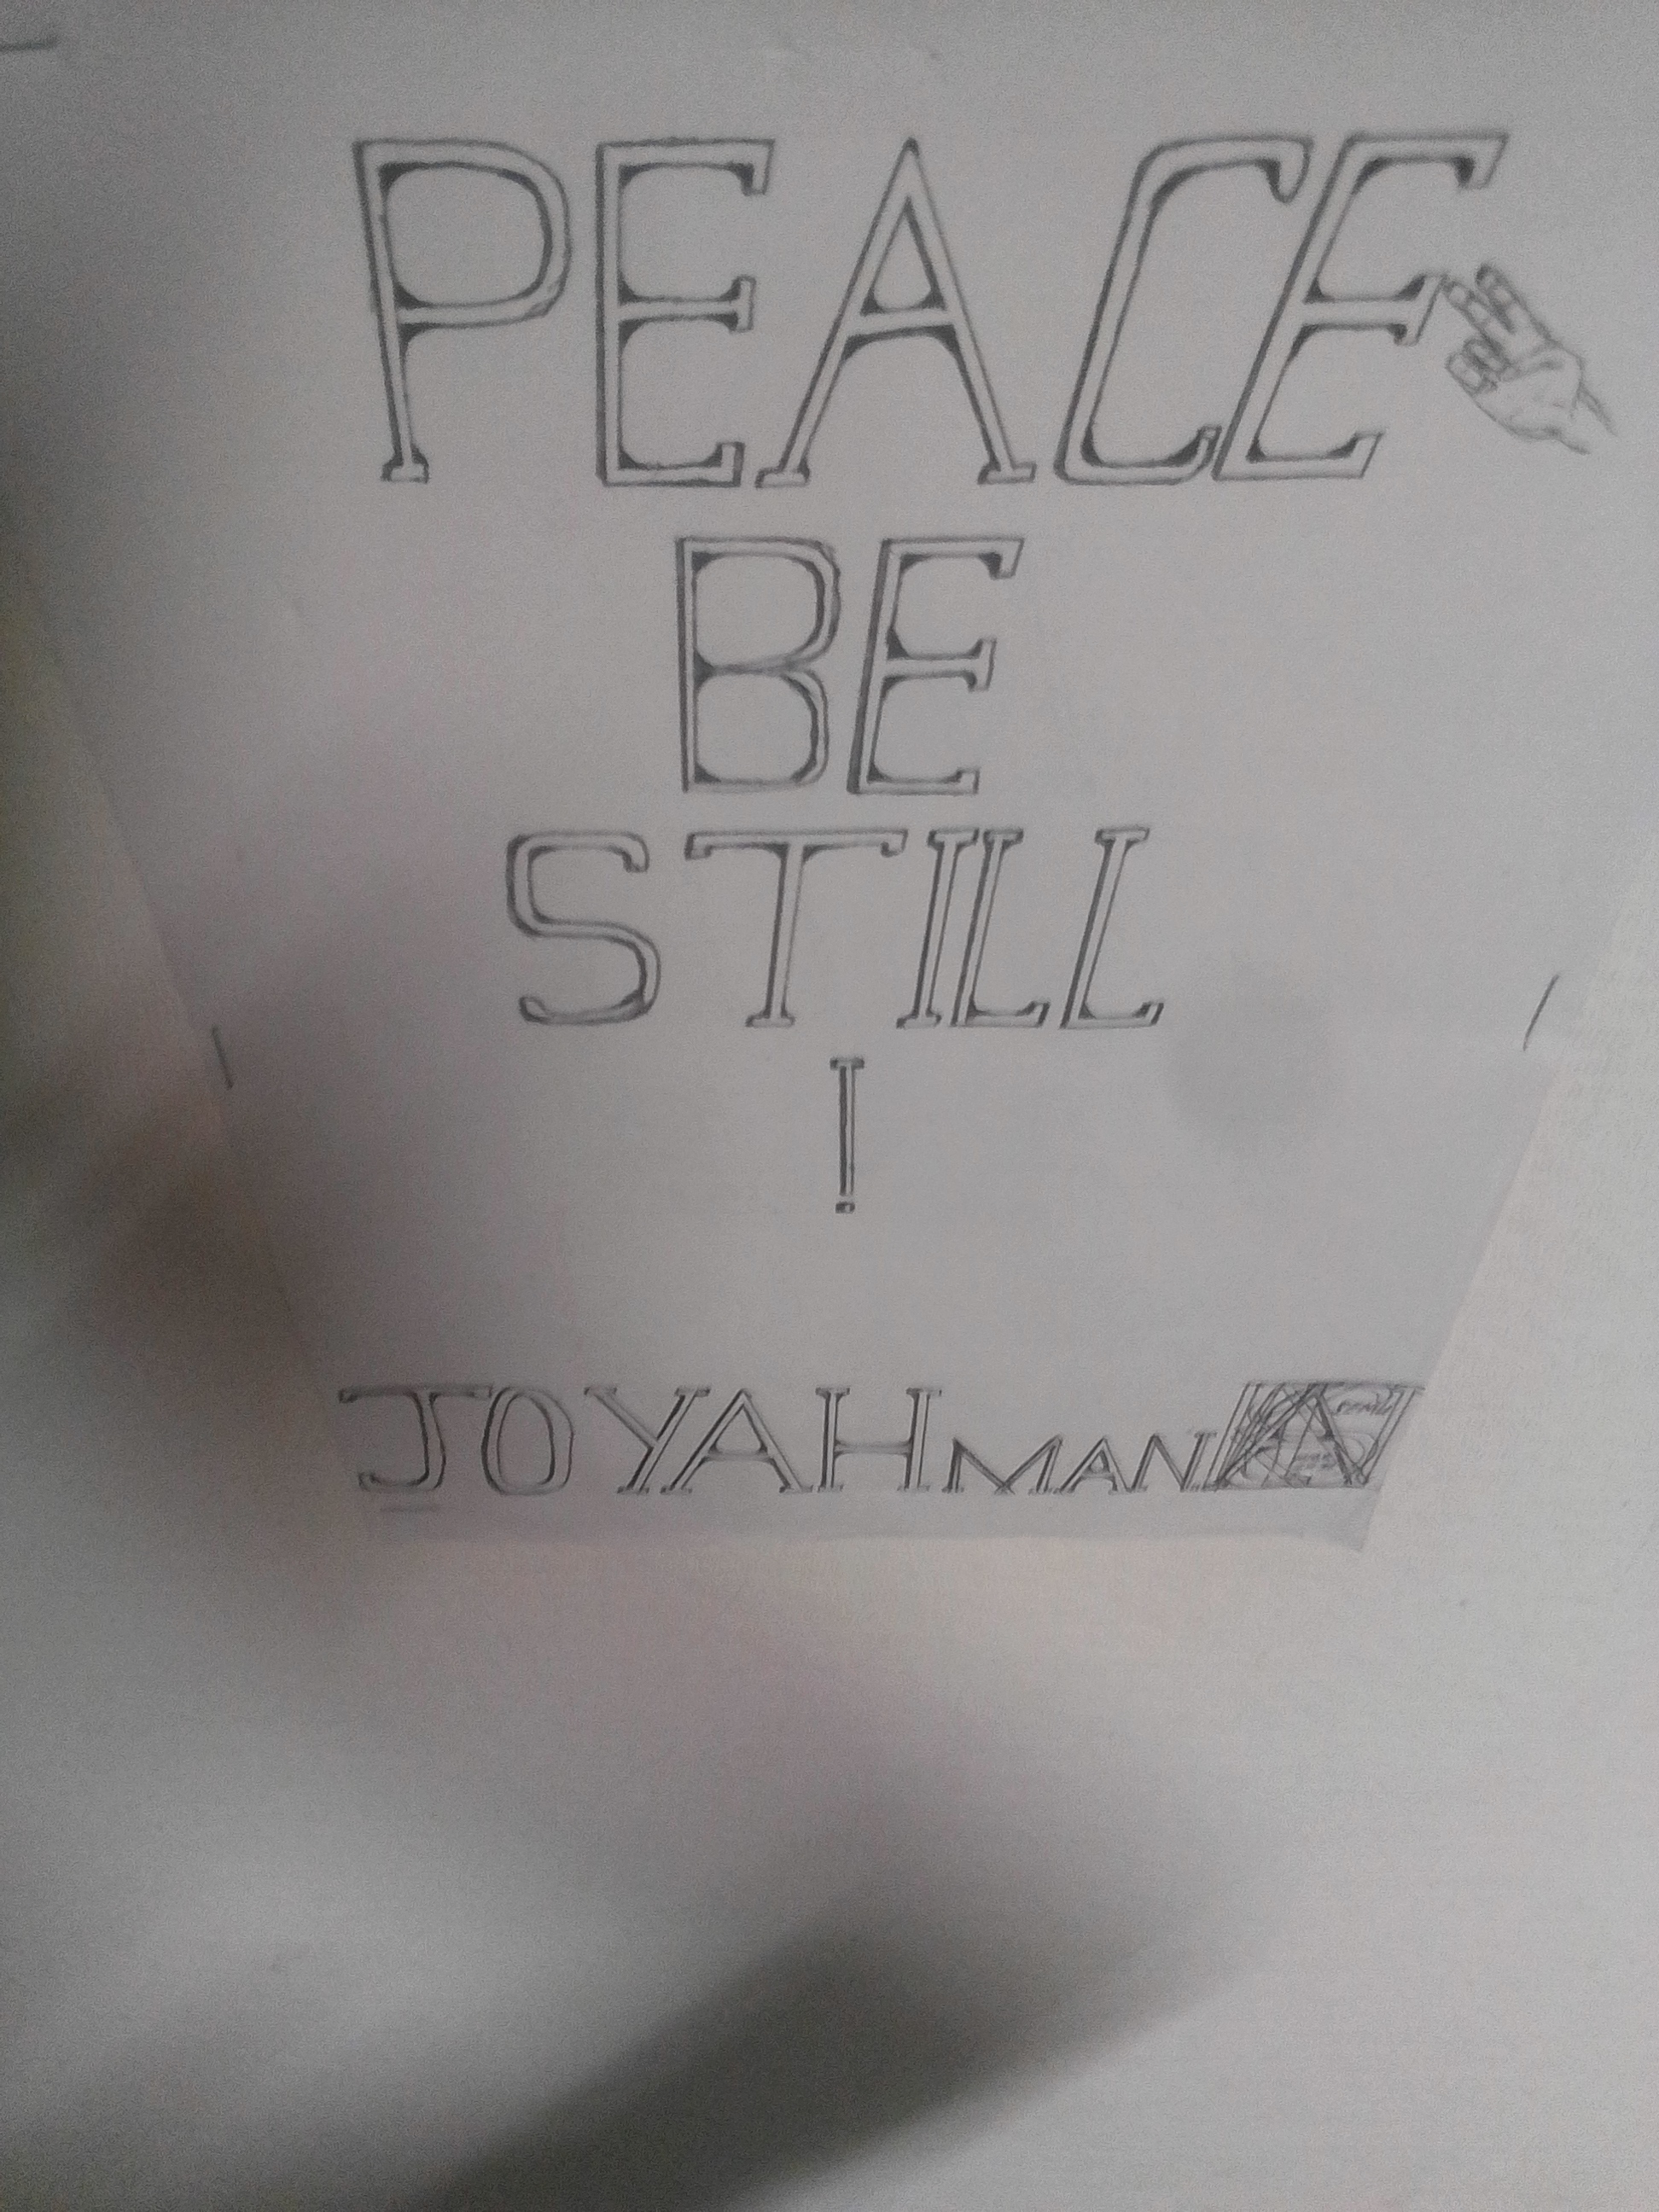 PEACE
BE
STILL
!
JOYAHMAN